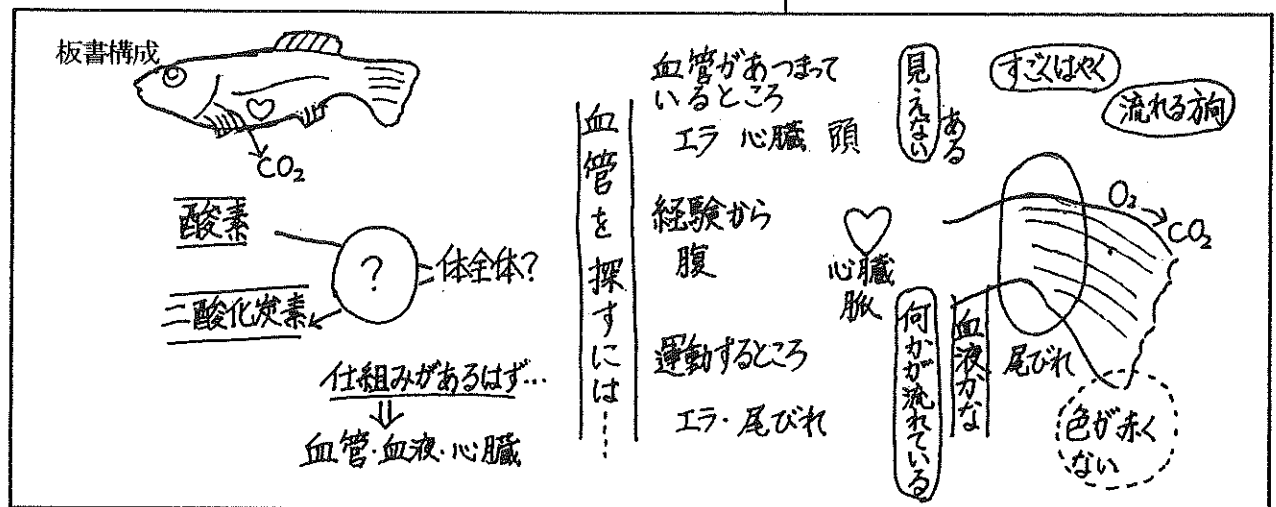 板書構成
CO₂
酸素
?
体全体?
二酸化炭素
仕組みがあるはず…
⇓
血管・血液・心臓
血管を探すには……
血管があつまって
いるところ
エラ 心臓 頭
経験から
腹
運動するところ
エラ・尾びれ
見えない
ある
すごくはやく
流れる方向
心臓
脈
何かが流れている
血液かな
O₂→CO₂
尾びれ
色が赤く
ない